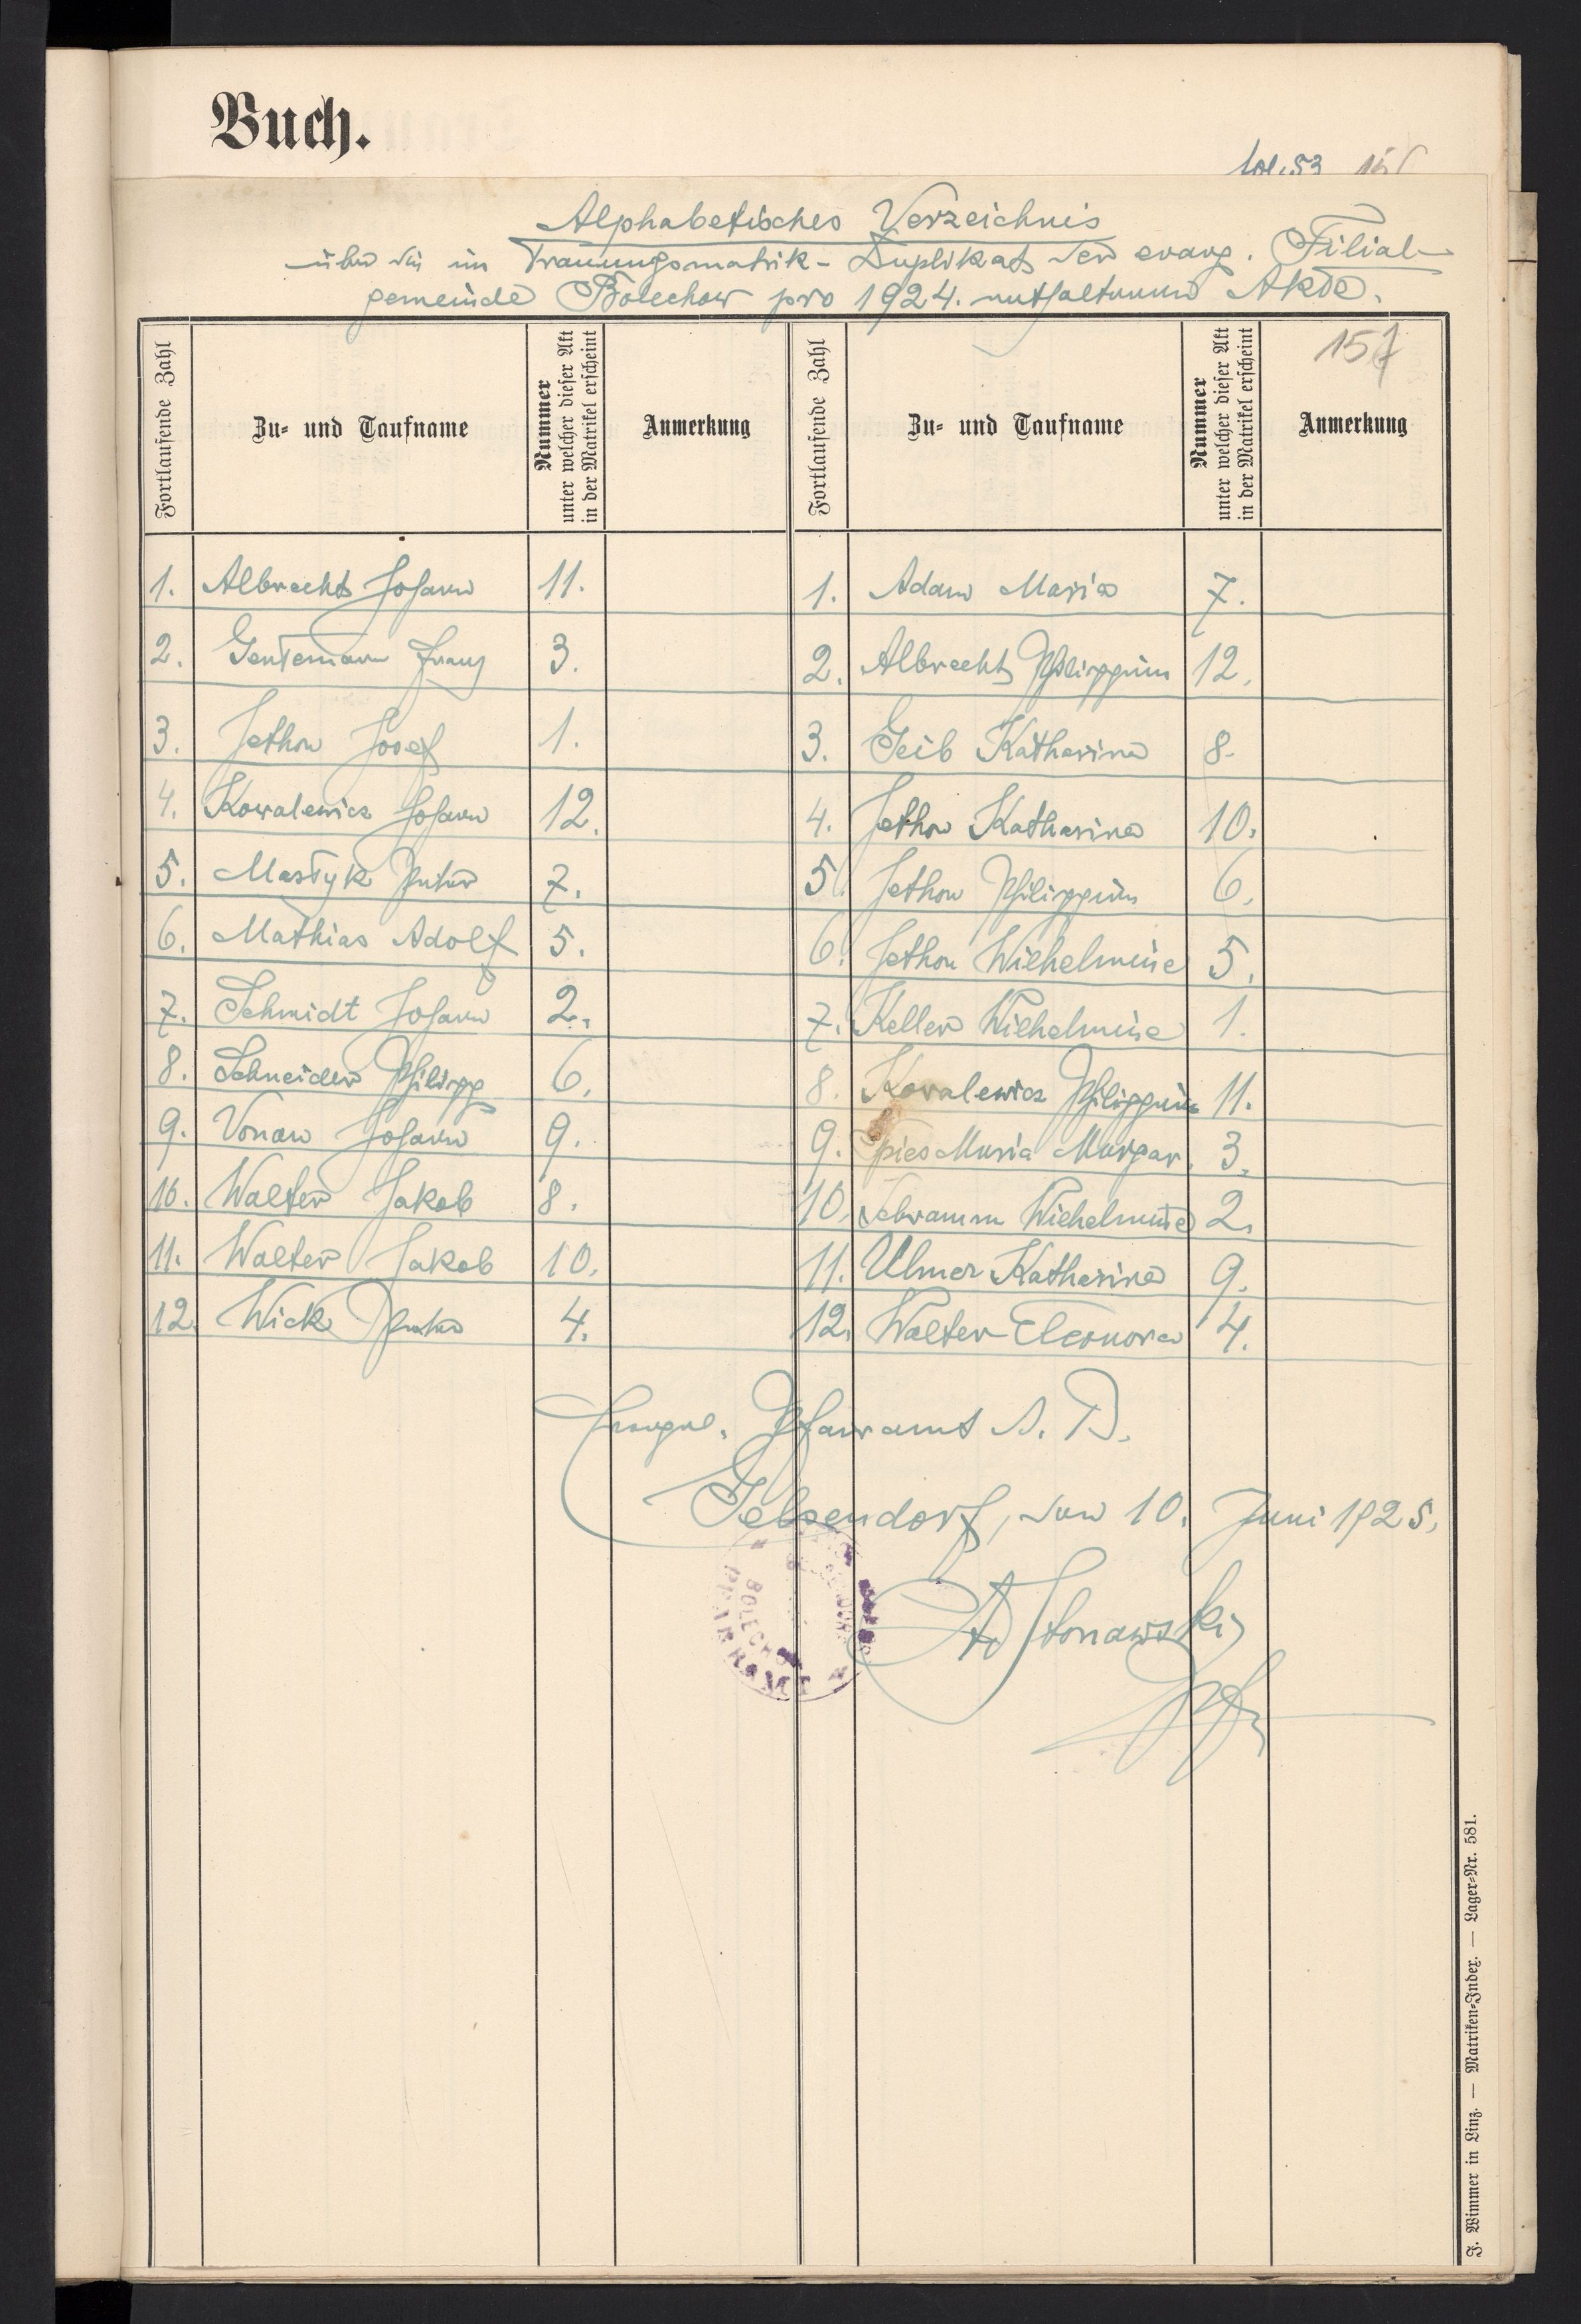 Buch.
Alphabetisches Verzeichnis
über die im Trauungsmatrik-Duplikat der evang. Filial-
gemeinde Bolechow pro 1924. enthaltenen Akte.
157
Fortlaufende Zahl
Zu- und Taufname
Nummer
unter welcher dieser Akt
in der Matrikel erscheint
Anmerkung
Fortlaufende Zahl
Zu- und Taufname
Nummer
unter welcher dieser Akt
in der Matrikel erscheint
Anmerkung
1. Albrecht Johann 11.
2. Gentemann Franz 3.
3. Jethon Josef 1.
4. Kowalewicz Johann 12.
5. Mastyk Peter 7.
6. Mathias Adolf 5.
7. Schmidt Johann 2.
8. Schneider Philipp 6.
9. Vonau Johann 9.
10. Walter Jakob 8.
11. Walter Jakob 10.
12. Wick Peter 4.
1. Adam Maria 7.
2. Albrecht Philippine 12.
3. Geib Katharina 8.
4. Jethon Katharina 10.
5. Jethon Philippine 6.
6. Jethon Wilhelmine 5.
7. Keller Wilhelmine 1.
8. Kovalewicz Philippine 11.
9. Spies Maria Margar. 3.
10. Schramm Wilhelmine 2.
11. Ulmer Katharina 9.
12. Walter Eleonora 4.
Evangel. Pfarramt A. B.
Gelsendorf, den 10. Juni 1925.
BOLECHOW
PFARRAMT
J. Wimmer in Linz. — Matriken-Index. — Lager-Nr. 581.